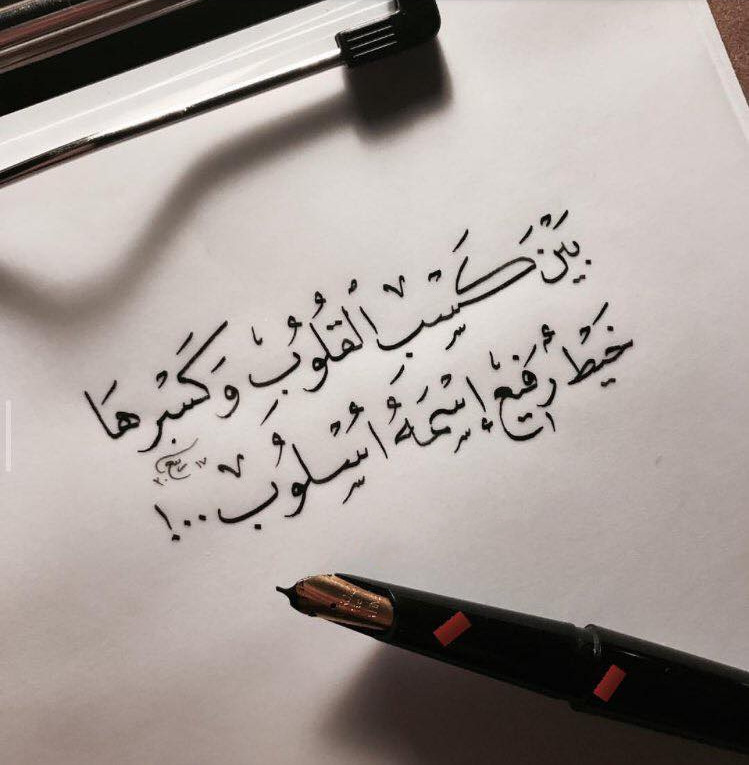 بَيْنَ كَسْبِ القُلُوبِ وَكَسْرِهَا
خَيْطٌ رَفِيعٌ إِسْمَهُ أُسْلُوبْ..!